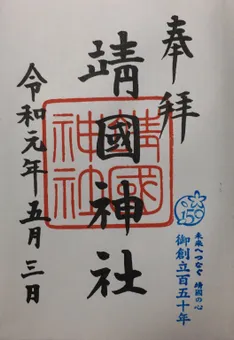 奉拝
靖國神社
靖國神社
令和元年五月三日
150
未来へつなぐ 靖国の心
御創立百五十年